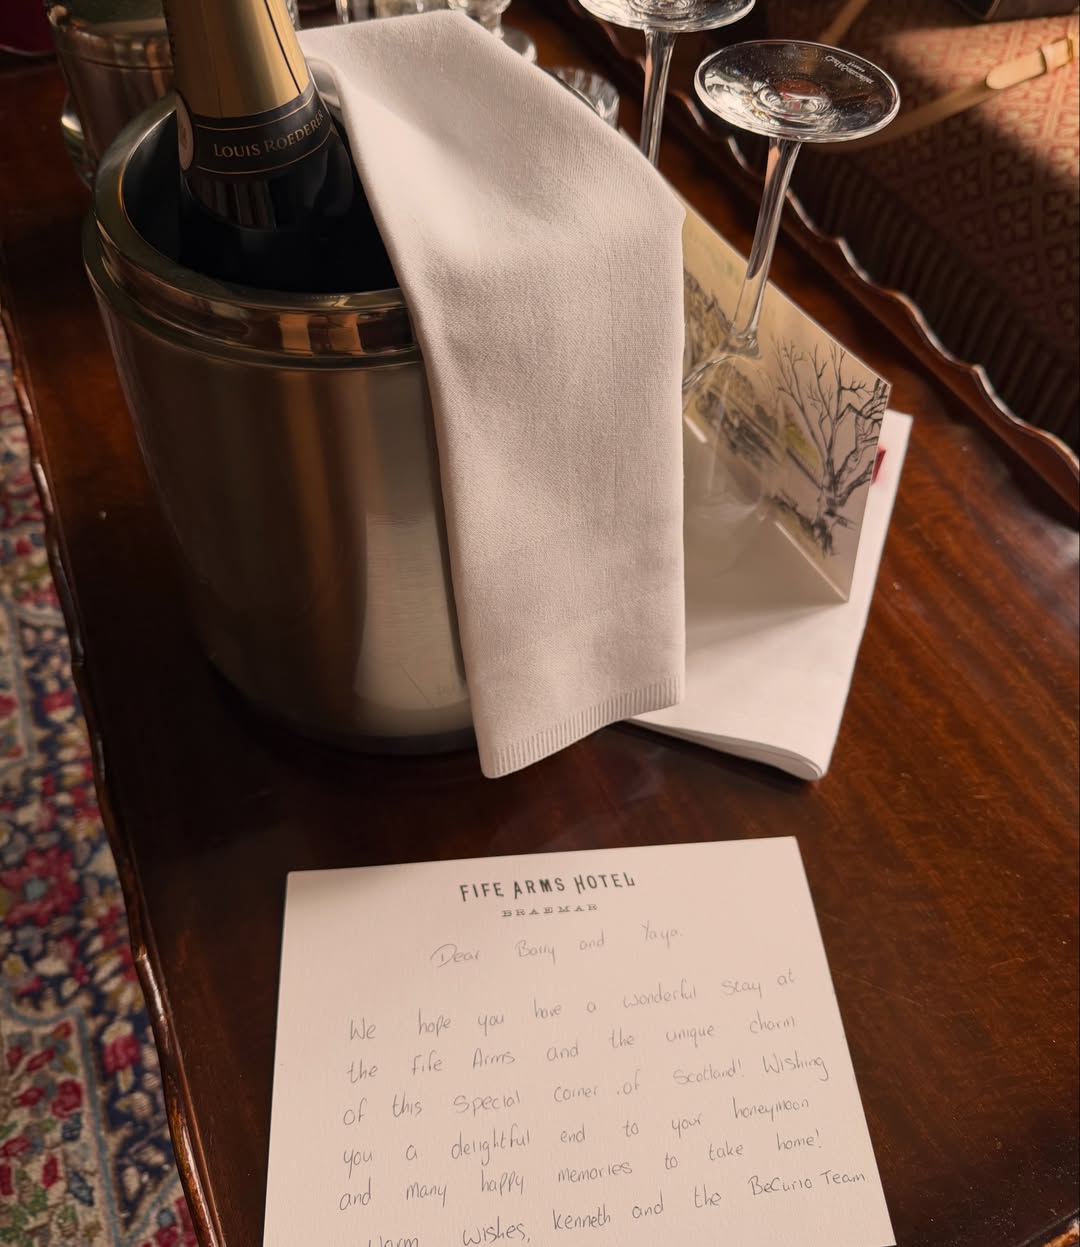 LOUIS ROEDERER
FIFE ARMS HOTEL
BRAEMAR
Dear Barry and Yaya.
We hope you have a wonderful stay at
the Fife Arms and the unique charm
of this special corner of Scotland! Wishing
you a delightful end to your honeymoon
and many happy memories to take home!
Warm wishes, Kenneth and the BeCurio Team